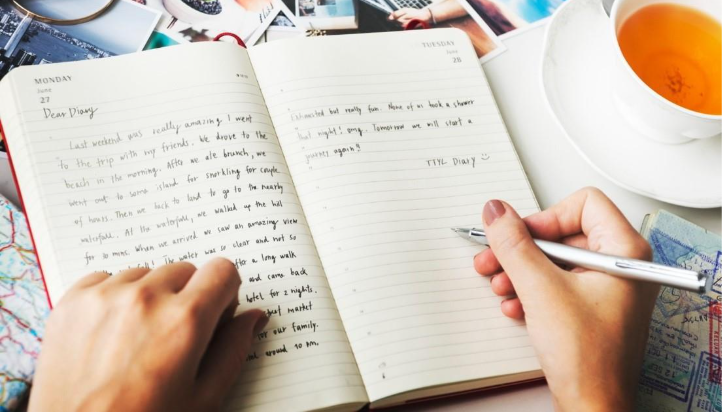 MONDAY
June
27
Dear Diary
Last weekend was really amazing. I went
to the trip with my friends. We drove to the
beach in the morning. After we ate brunch, we
went out to some island for snorkling for couple
of hours. Then we back to land to go to the nearby
waterfall. At the waterfall, we walked up the hill
for 30 mins. When we arrived we saw an amazing view
waterfall. The water was so clear and not so
after a long walk
and came back
hotel for 2 nights.
market
for our family.
around 10 pm.
TUESDAY
June
28
Exhausted but really fun. None of us took a shower
last night! omg. Tomorrow we will start a
journey again!!
TTYL Diary